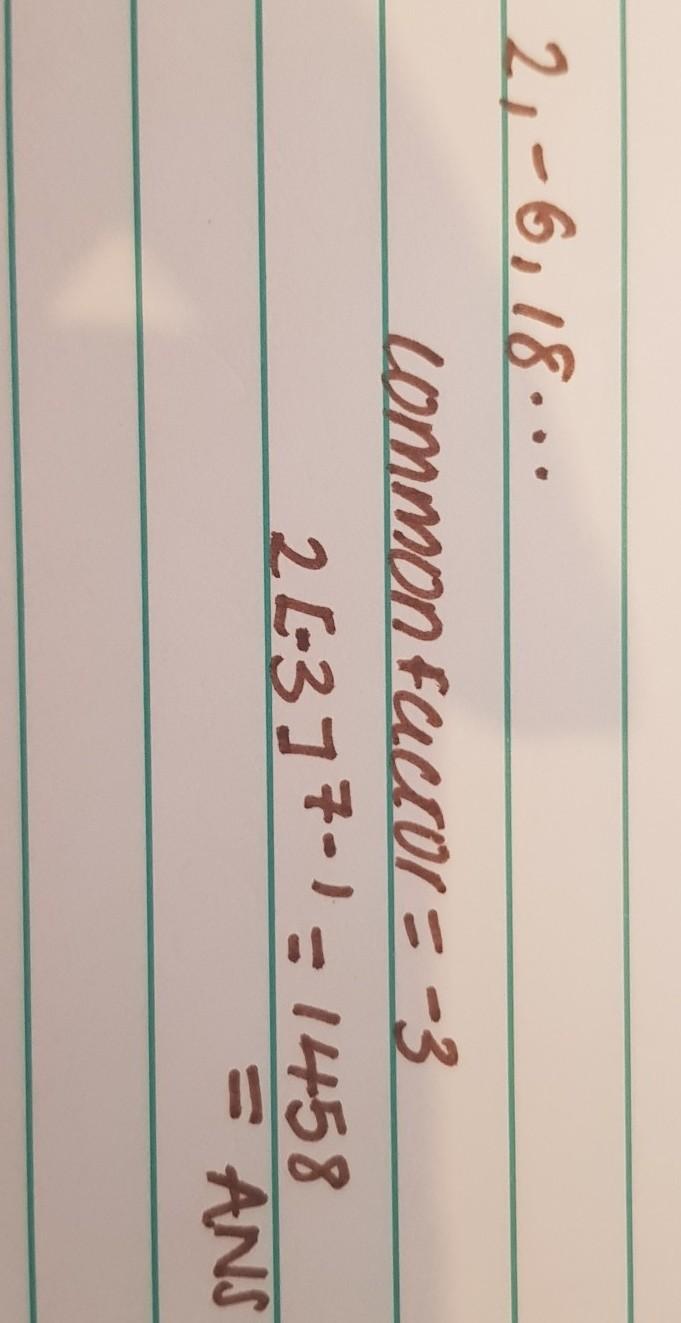 2, -6, 18...
common factor = -3
2[-3]⁷⁻¹ = 1458
= ANS